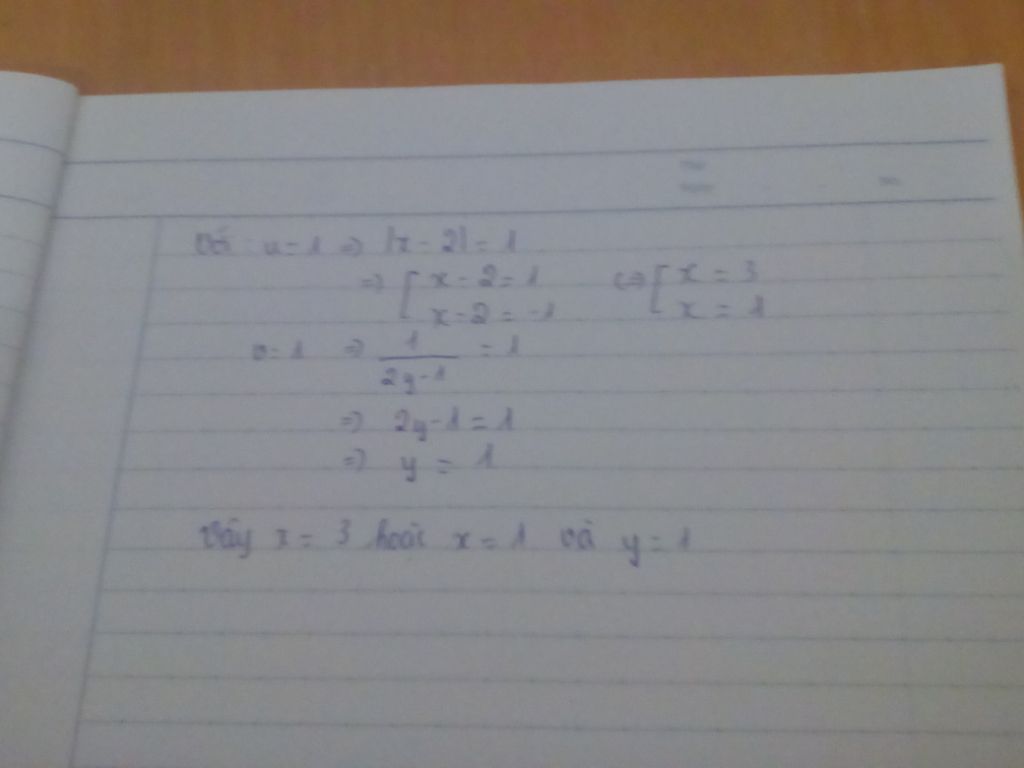 Với u = 1 => |x - 2| = 1
=> [ x - 2 = 1 <=> [ x = 3
x - 2 = -1 x = 1
v = 1 => 1/(2y-1) = 1
=> 2y - 1 = 1
=> y = 1
Vậy x = 3 hoặc x = 1 và y = 1